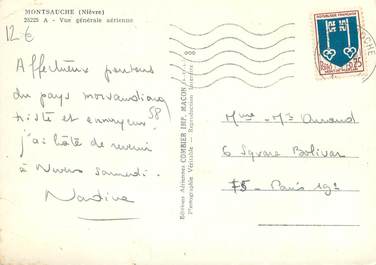 MONTSAUCHE (Nièvre)
26225 A - Vue générale aérienne
12 €
Affectueux pensées
du pays morvandiau
triste et ennuyeux
58
j'ai hâte de revenir
à Nevers samedi.
Nadine
Editions Aériennes COMBIER IMP. MACON
Photographie Véritable - Reproduction Interdite
REPUBLIQUE FRANÇAISE
0,25
MONT-DE-MARSAN
Mme - Durand
6 Square Bolivar
75 - Paris 19e